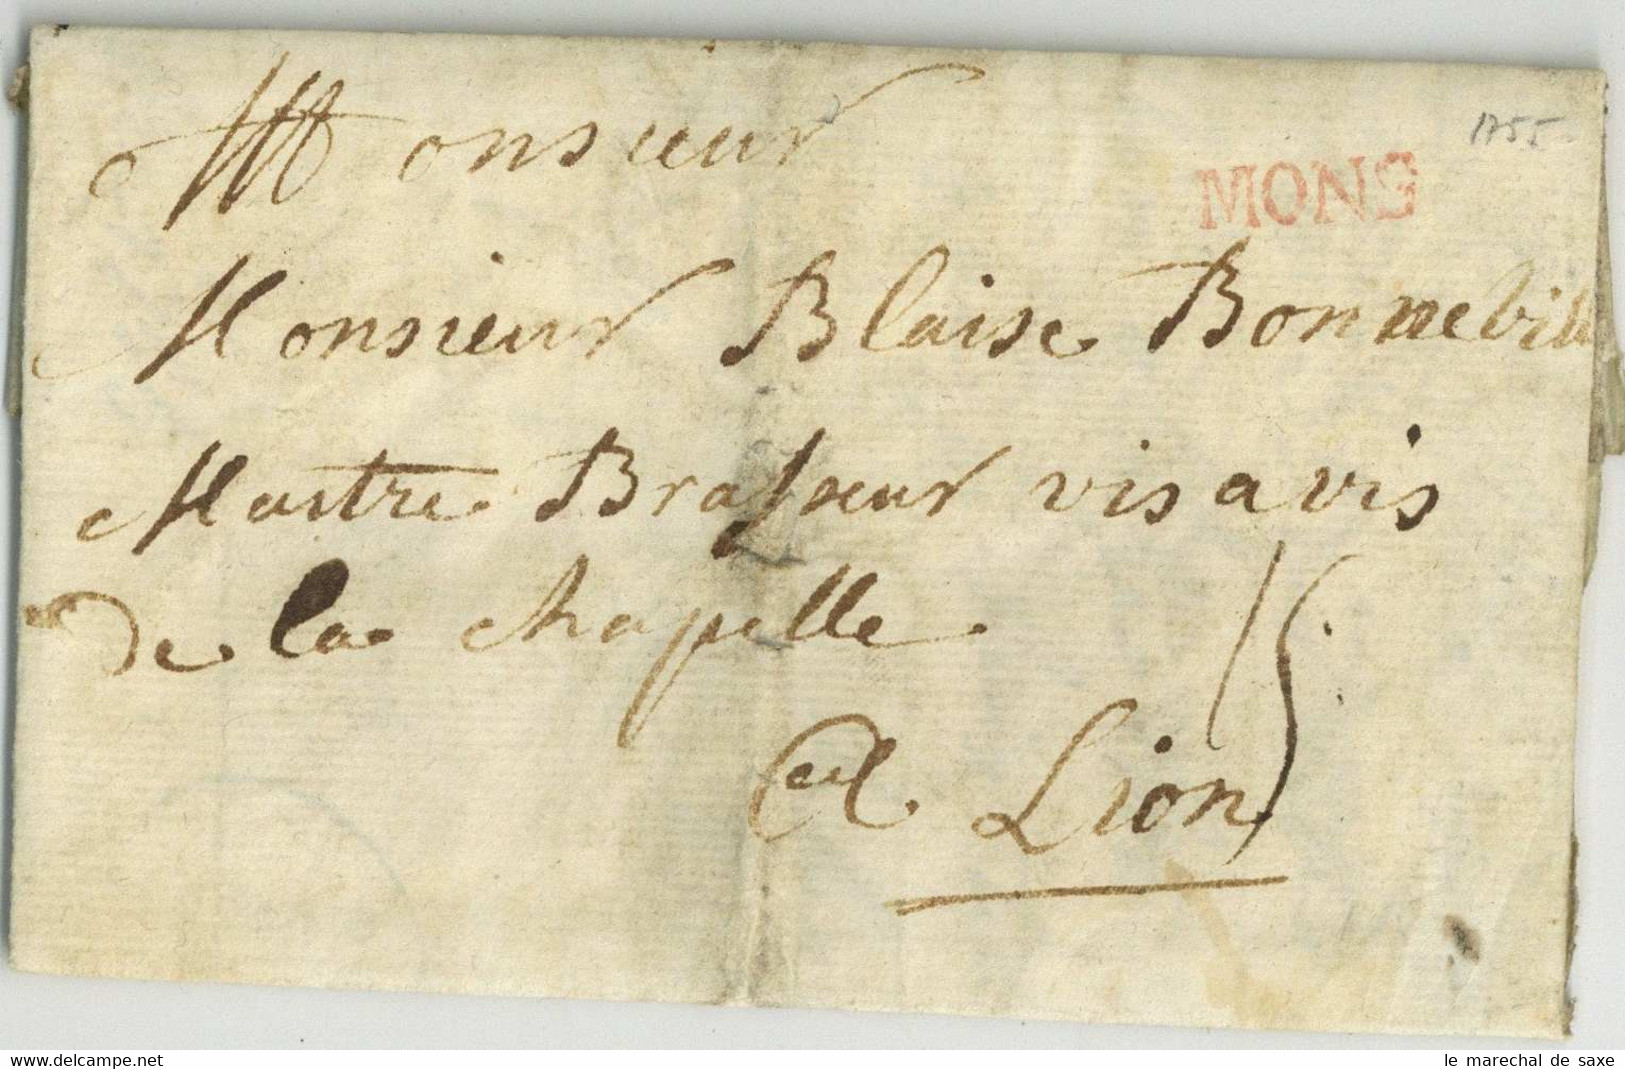 1755
MONS
Monsieur
Monsieur Blaise Bonnebille
Maitre Brasseur vis a vis
de la chapelle
15
a Lion
le marechal de saxe
www.delcampe.net